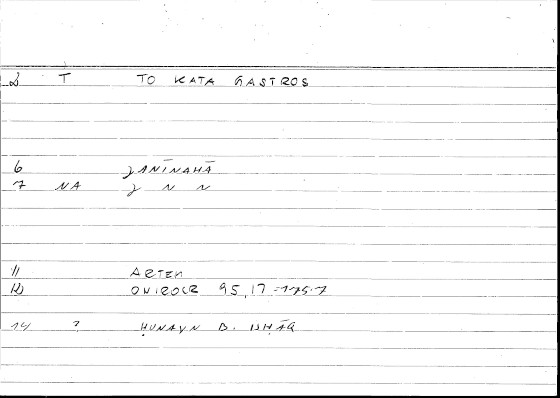 2 T TO KATA GASTROS
6 ǧANĪNAHĀ
7 NA ǧ N N
11 ARTEM
12 ONIROCR 95,17 -175.7
14 ? ḤUNAYN B. ISḤĀQ